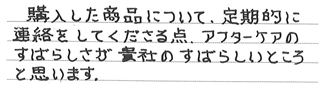 購入した商品について、定期的に
連絡をしてくださる点、アフターケアの
すばらしさが貴社のすばらしいところ
と思います。